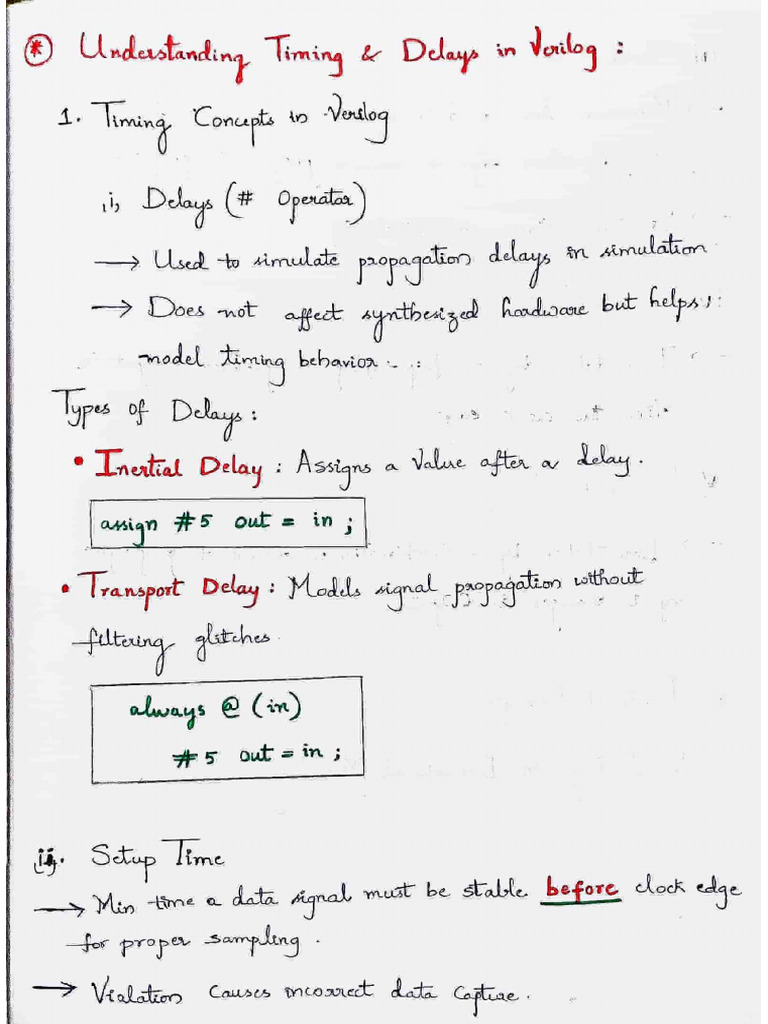 * Understanding Timing & Delays in Verilog :
1. Timing Concepts in Verilog
i, Delays (# Operator)
→ Used to simulate propagation delays in simulation
→ Does not affect synthesized hardware but helps
model timing behavior.
Types of Delays :
• Inertial Delay : Assigns a value after a delay.
assign #5 out = in ;
• Transport Delay : Models signal propagation without
filtering glitches
always @ (in)
#5 out = in ;
ii. Setup Time
→ Min time a data signal must be stable before clock edge
for proper sampling.
→ Violation causes incorrect data capture.